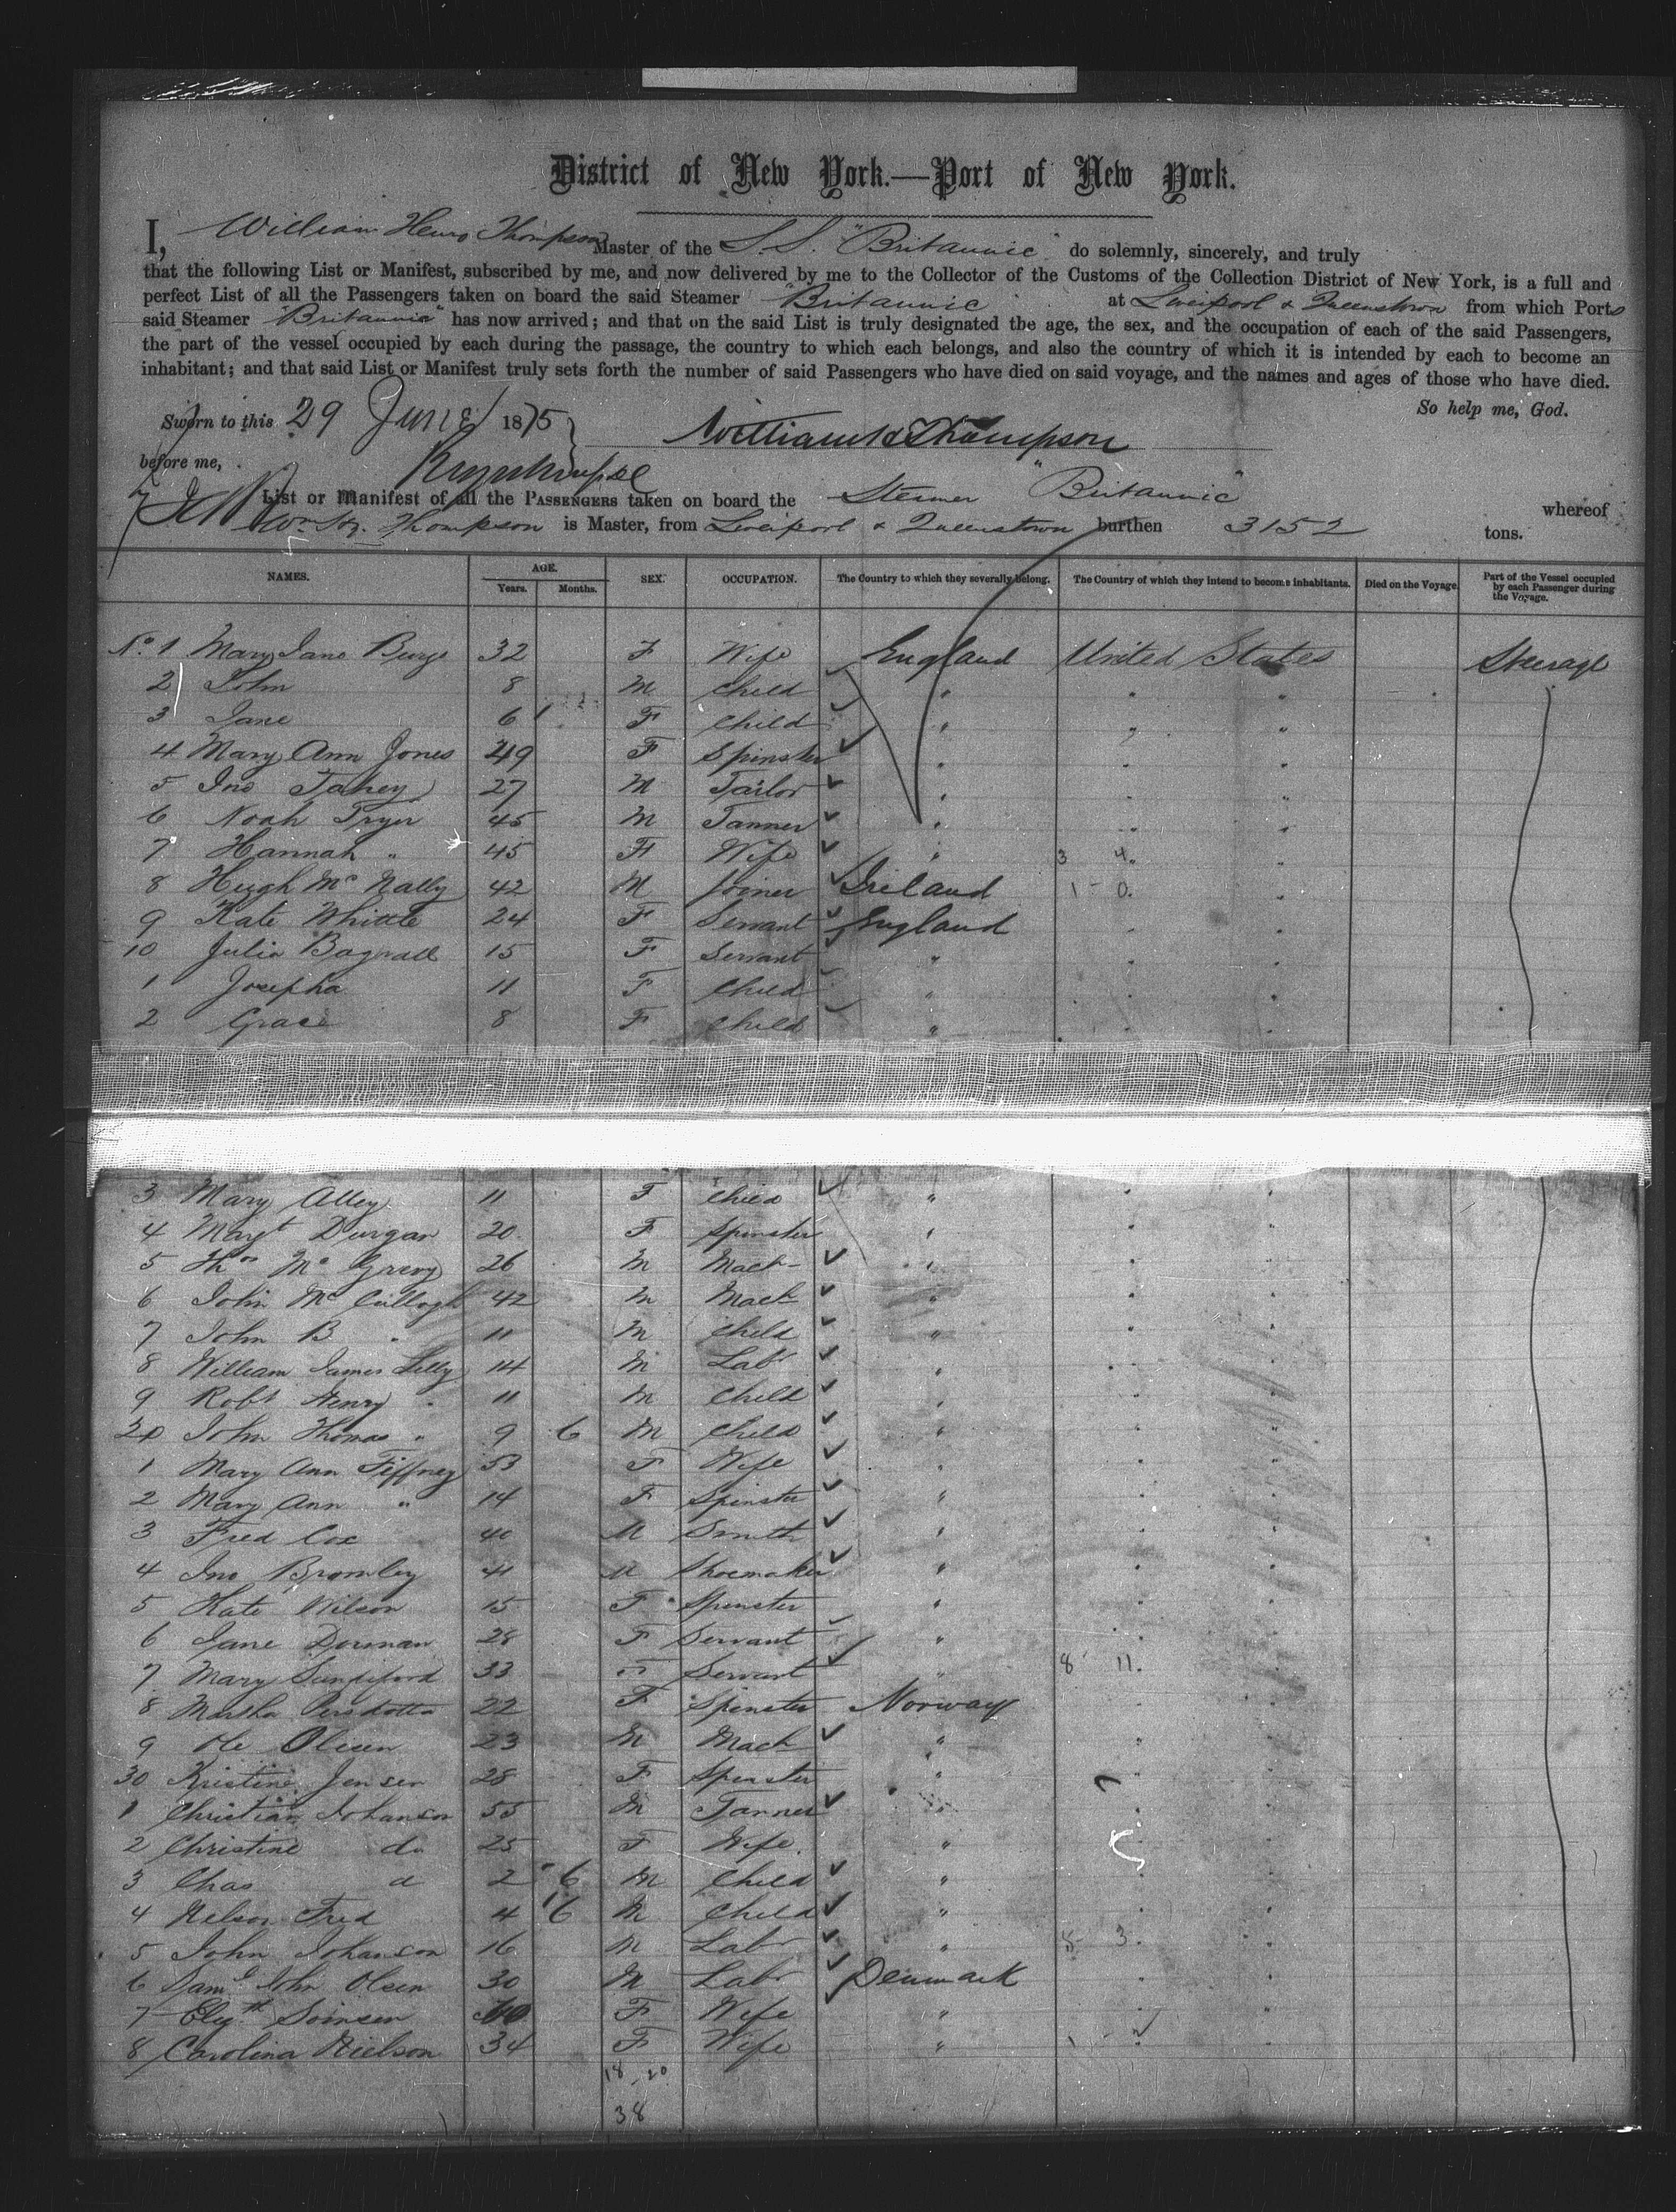 District of New York.—Port of New York.
I, William Henry Thompson Master of the S.S. "Britannic" do solemnly, sincerely, and truly
that the following List or Manifest, subscribed by me, and now delivered by me to the Collector of the Customs of the Collection District of New York, is a full and
perfect List of all the Passengers taken on board the said Steamer "Britannic" at Liverpool & Queenstown from which Ports
said Steamer "Britannic" has now arrived; and that on the said List is truly designated the age, the sex, and the occupation of each of the said Passengers,
the part of the vessel occupied by each during the passage, the country to which each belongs, and also the country of which it is intended by each to become an
inhabitant; and that said List or Manifest truly sets forth the number of said Passengers who have died on said voyage, and the names and ages of those who have died.
So help me, God.
Sworn to this 29 June 1875
William H Thompson
before me,
List or Manifest of all the PASSENGERS taken on board the Steamer "Britannic" whereof
Wm Hy. Thompson is Master, from Liverpool & Queenstown burthen 3152 tons.
NAMES. AGE. Years. Months. SEX. OCCUPATION. The Country to which they severally belong. The Country of which they intend to become inhabitants. Died on the Voyage. Part of the Vessel occupied by each Passenger during the Voyage.
No. 1 Mary Jane Burge 32 F Wife England United States Steerage
2 John 8 M Child " " "
3 Jane 6 F Child " " "
4 Mary Ann Jones 49 F Spinster " " "
5 Jno Fahey 27 M Tailor " " "
6 Noah Fryer 45 M Tanner " " "
7 Hannah " 45 F Wife " 3 4 "
8 Hugh Mc Nally 42 M Joiner Ireland 1 - 0 "
9 Kate Whittle 24 F Servant England " "
10 Julia Bagnall 15 F Servant " " "
1 Josepha 11 F Child " " "
2 Grace 8 F Child " " "
3 Mary Alley 11 F Child " " "
4 Magt Durgan 20 F Spinster " " "
5 Thos Mc Grevy 26 M Mach " " "
6 John Mc Cullogh 42 M Mach " " "
7 John B " 11 M Child " " "
8 William James Lilly 14 M Labr " " "
9 Robt Henry " 11 M Child " " "
20 John Thomas " 9 6 M Child " " "
1 Mary Ann Fiffney 53 F Wife " " "
2 Mary Ann " 14 F Spinster " " "
3 Fred Cox 40 M Smith " " "
4 Jno Bromley 41 M Shoemaker " " "
5 Kate Wilson 15 F Spinster " " "
6 Jane Dorman 28 F Servant " " "
7 Mary Sandiford 33 F Servant " 8 11 "
8 Martha Persdotta 22 F Spinster Norway " "
9 Ole Olsen 23 M Mach " " "
30 Kristine Jensen 28 F Spinster " " "
1 Christian Johanson 55 M Tanner " " "
2 Christine do 25 F Wife " " "
3 Chas d 2 6 M Child " " "
4 Nelson Fred 4 6 M Child " " "
5 John Johanson 16 M Labr " 8 3 "
6 Saml John Olsen 30 M Labr Denmark " "
7 Elizth Soinsen F Wife " " "
8 Carolina Nielson 34 F Wife " 1
18 20
38